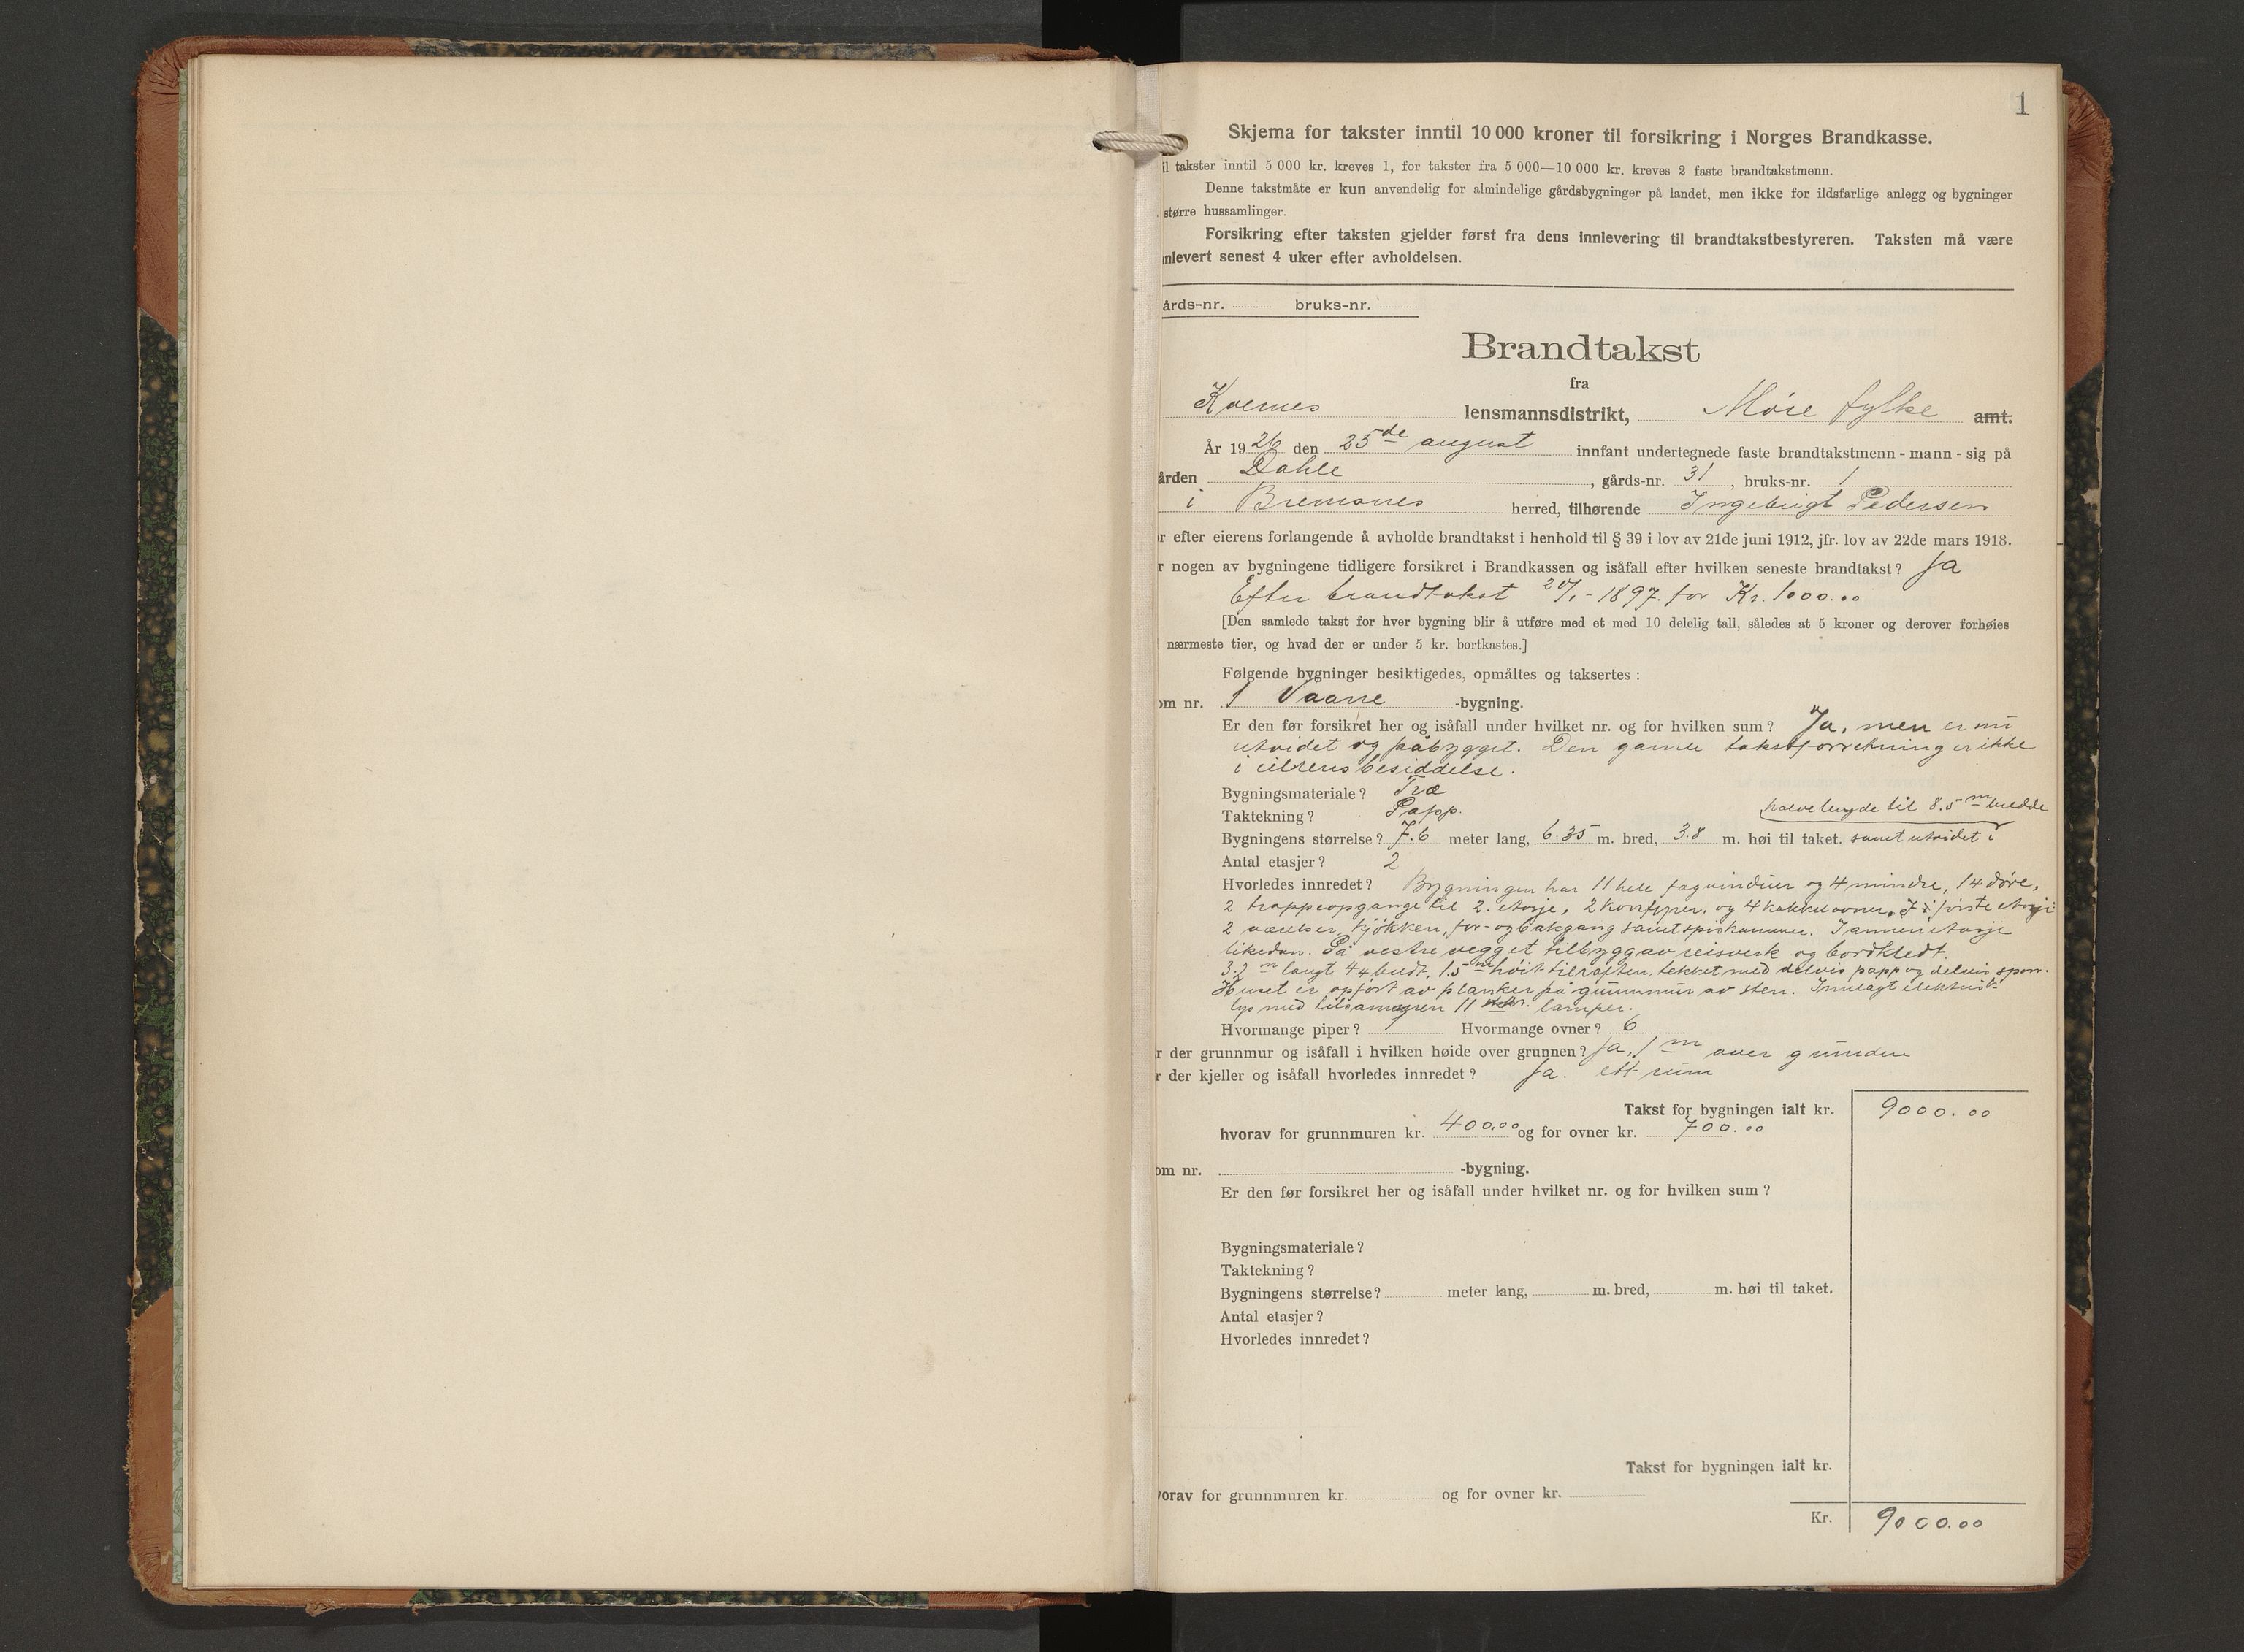 1
Skjema for takster inntil 10 000 kroner til forsikring i Norges Brandkasse.
il takster inntil 5 000 kr. kreves 1, for takster fra 5 000—10 000 kr. kreves 2 faste brandtakstmenn.
Denne takstmåte er kun anvendelig for almindelige gårdsbygninger på landet, men ikke for ildsfarlige anlegg og bygninger
større hussamlinger.
Forsikring efter taksten gjelder først fra dens innlevering til brandtakstbestyreren. Taksten må være
nlevert senest 4 uker efter avholdelsen.
årds-nr. bruks-nr.
Brandtakst
fra
Kvernes lensmannsdistrikt, Møre fylke amt.
År 1926 den 25de august innfant undertegnede faste brandtakstmenn - mann - sig på
ården Dahle, gårds-nr. 31, bruks-nr. 1
i Bremsnes herred, tilhørende Ingebrigt Pedersen
r efter eierens forlangende å avholde brandtakst i henhold til § 39 i lov av 21de juni 1912, jfr. lov av 22de mars 1918.
r nogen av bygningene tidligere forsikret i Brandkassen og isåfall efter hvilken seneste brandtakst? Ja
Efter brandtakst 20/1 - 1897. for Kr. 1000.00
[Den samlede takst for hver bygning blir å utføre med et med 10 delelig tall, således at 5 kroner og derover forhøies
nærmeste tier, og hvad der er under 5 kr. bortkastes.]
Følgende bygninger besiktigedes, opmåltes og taksertes :
om nr. 1 Vaane -bygning.
Er den før forsikret her og isåfall under hvilket nr. og for hvilken sum? Ja, men er nu
utvidet og påbygget. Den gamle takstforretning er ikke
i eierens besiddelse.
Bygningsmateriale? Træ
Taktekning? Papp. halve lengde til 8.5 m bredde
Bygningens størrelse? 7.6 meter lang, 6.35 m. bred, 3.8 m. høi til taket. samt utvidet i
Antal etasjer? 2
Hvorledes innredet? Bygningen har 11 hele fag vinduer og 4 mindre, 14 døre,
2 trappeopgange til 2. etasje, 2 komfyrer, og 4 kakkelovner. I første etasje
2 værelser, kjøkken, for- og bakgang samt spiskammer. I annen etasje
likedan. På vestre vegg et tilbygg av reisverk og bordkledt.
3.2 m langt 4.4 bredt, 1.5 m høit til raften, tekket med delvis papp og delvis spon.
Huset er opført av planker på grunnmur av sten. Innlagt elektrisk
lys med tilsammen 11 lamper.
Hvormange piper? 1 Hvormange ovner? 6
r der grunnmur og isåfall i hvilken høide over grunnen? Ja, 1 m over grunden
r der kjeller og isåfall hvorledes innredet? Ja. ett rum
Takst for bygningen ialt kr. 9000.00
hvorav for grunnmuren kr. 400.00 og for ovner kr. 700.00
om nr. -bygning.
Er den før forsikret her og isåfall under hvilket nr. og for hvilken sum?
Bygningsmateriale?
Taktekning?
Bygningens størrelse? meter lang, m. bred, m. høi til taket.
Antal etasjer?
Hvorledes innredet?
Takst for bygningen ialt kr.
vorav for grunnmuren kr. og for ovner kr.
Kr. 9000.00